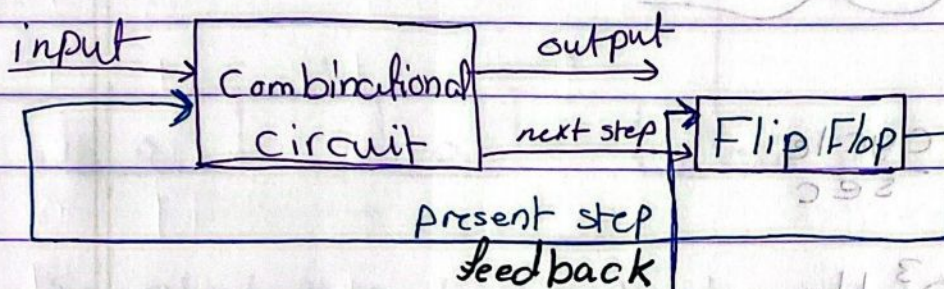 input
output
Combinational
circuit
next step
Flip Flop
present step
feedback